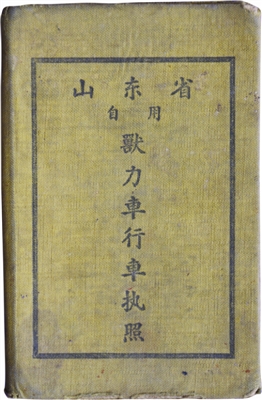 山东省
自用
獸力車行車执照